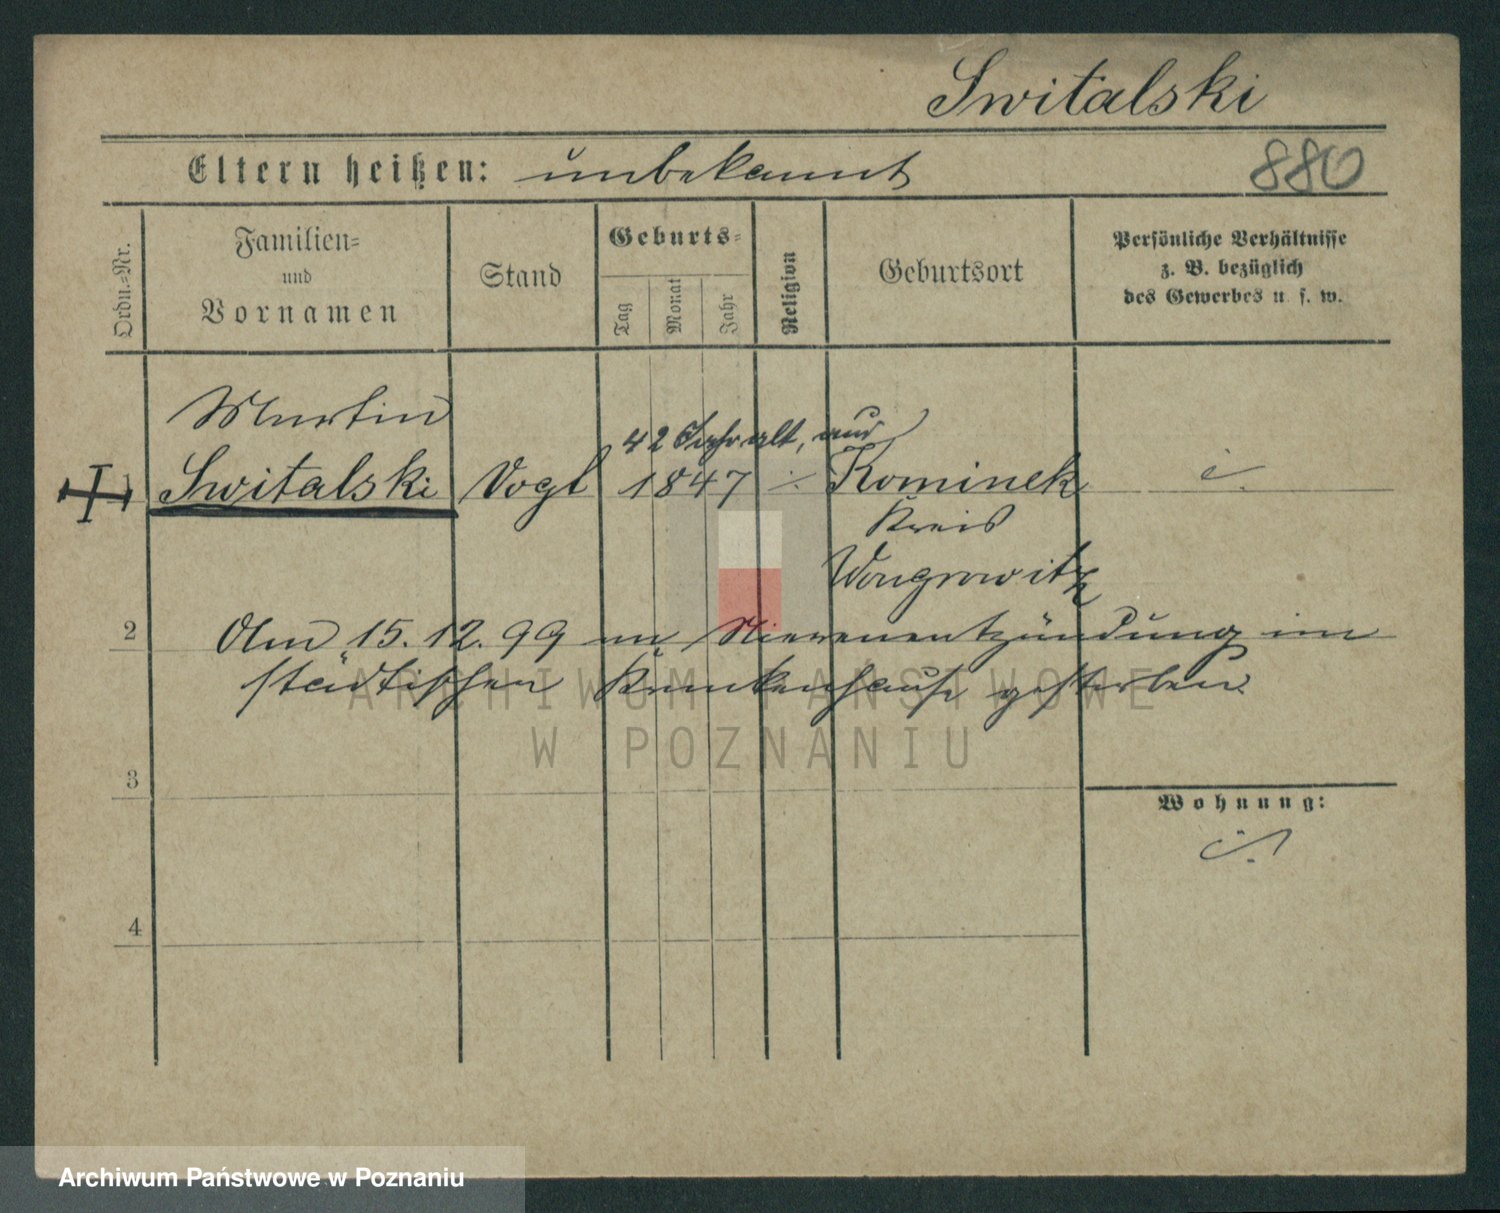 Switalski
Eltern heißen: unbekannt
880
Ordn.-Nr.
Familien-
und
Vornamen
Stand
Geburts-
Tag
Monat
Jahr
Religion
Geburtsort
Persönliche Verhältnisse
z. B. bezüglich
des Gewerbes u. s. w.
Martin
42 Jahr alt, aus
Switalski Vogt 1847 Kominek
Kreis
Wongrowitz
2
Am 15.12.99 an Nierenentzündung im
städtischen Krankenhause gestorben.
ARCHIWUM PAŃSTWOWE
W POZNANIU
3
Wohnung:
4
Archiwum Państwowe w Poznaniu